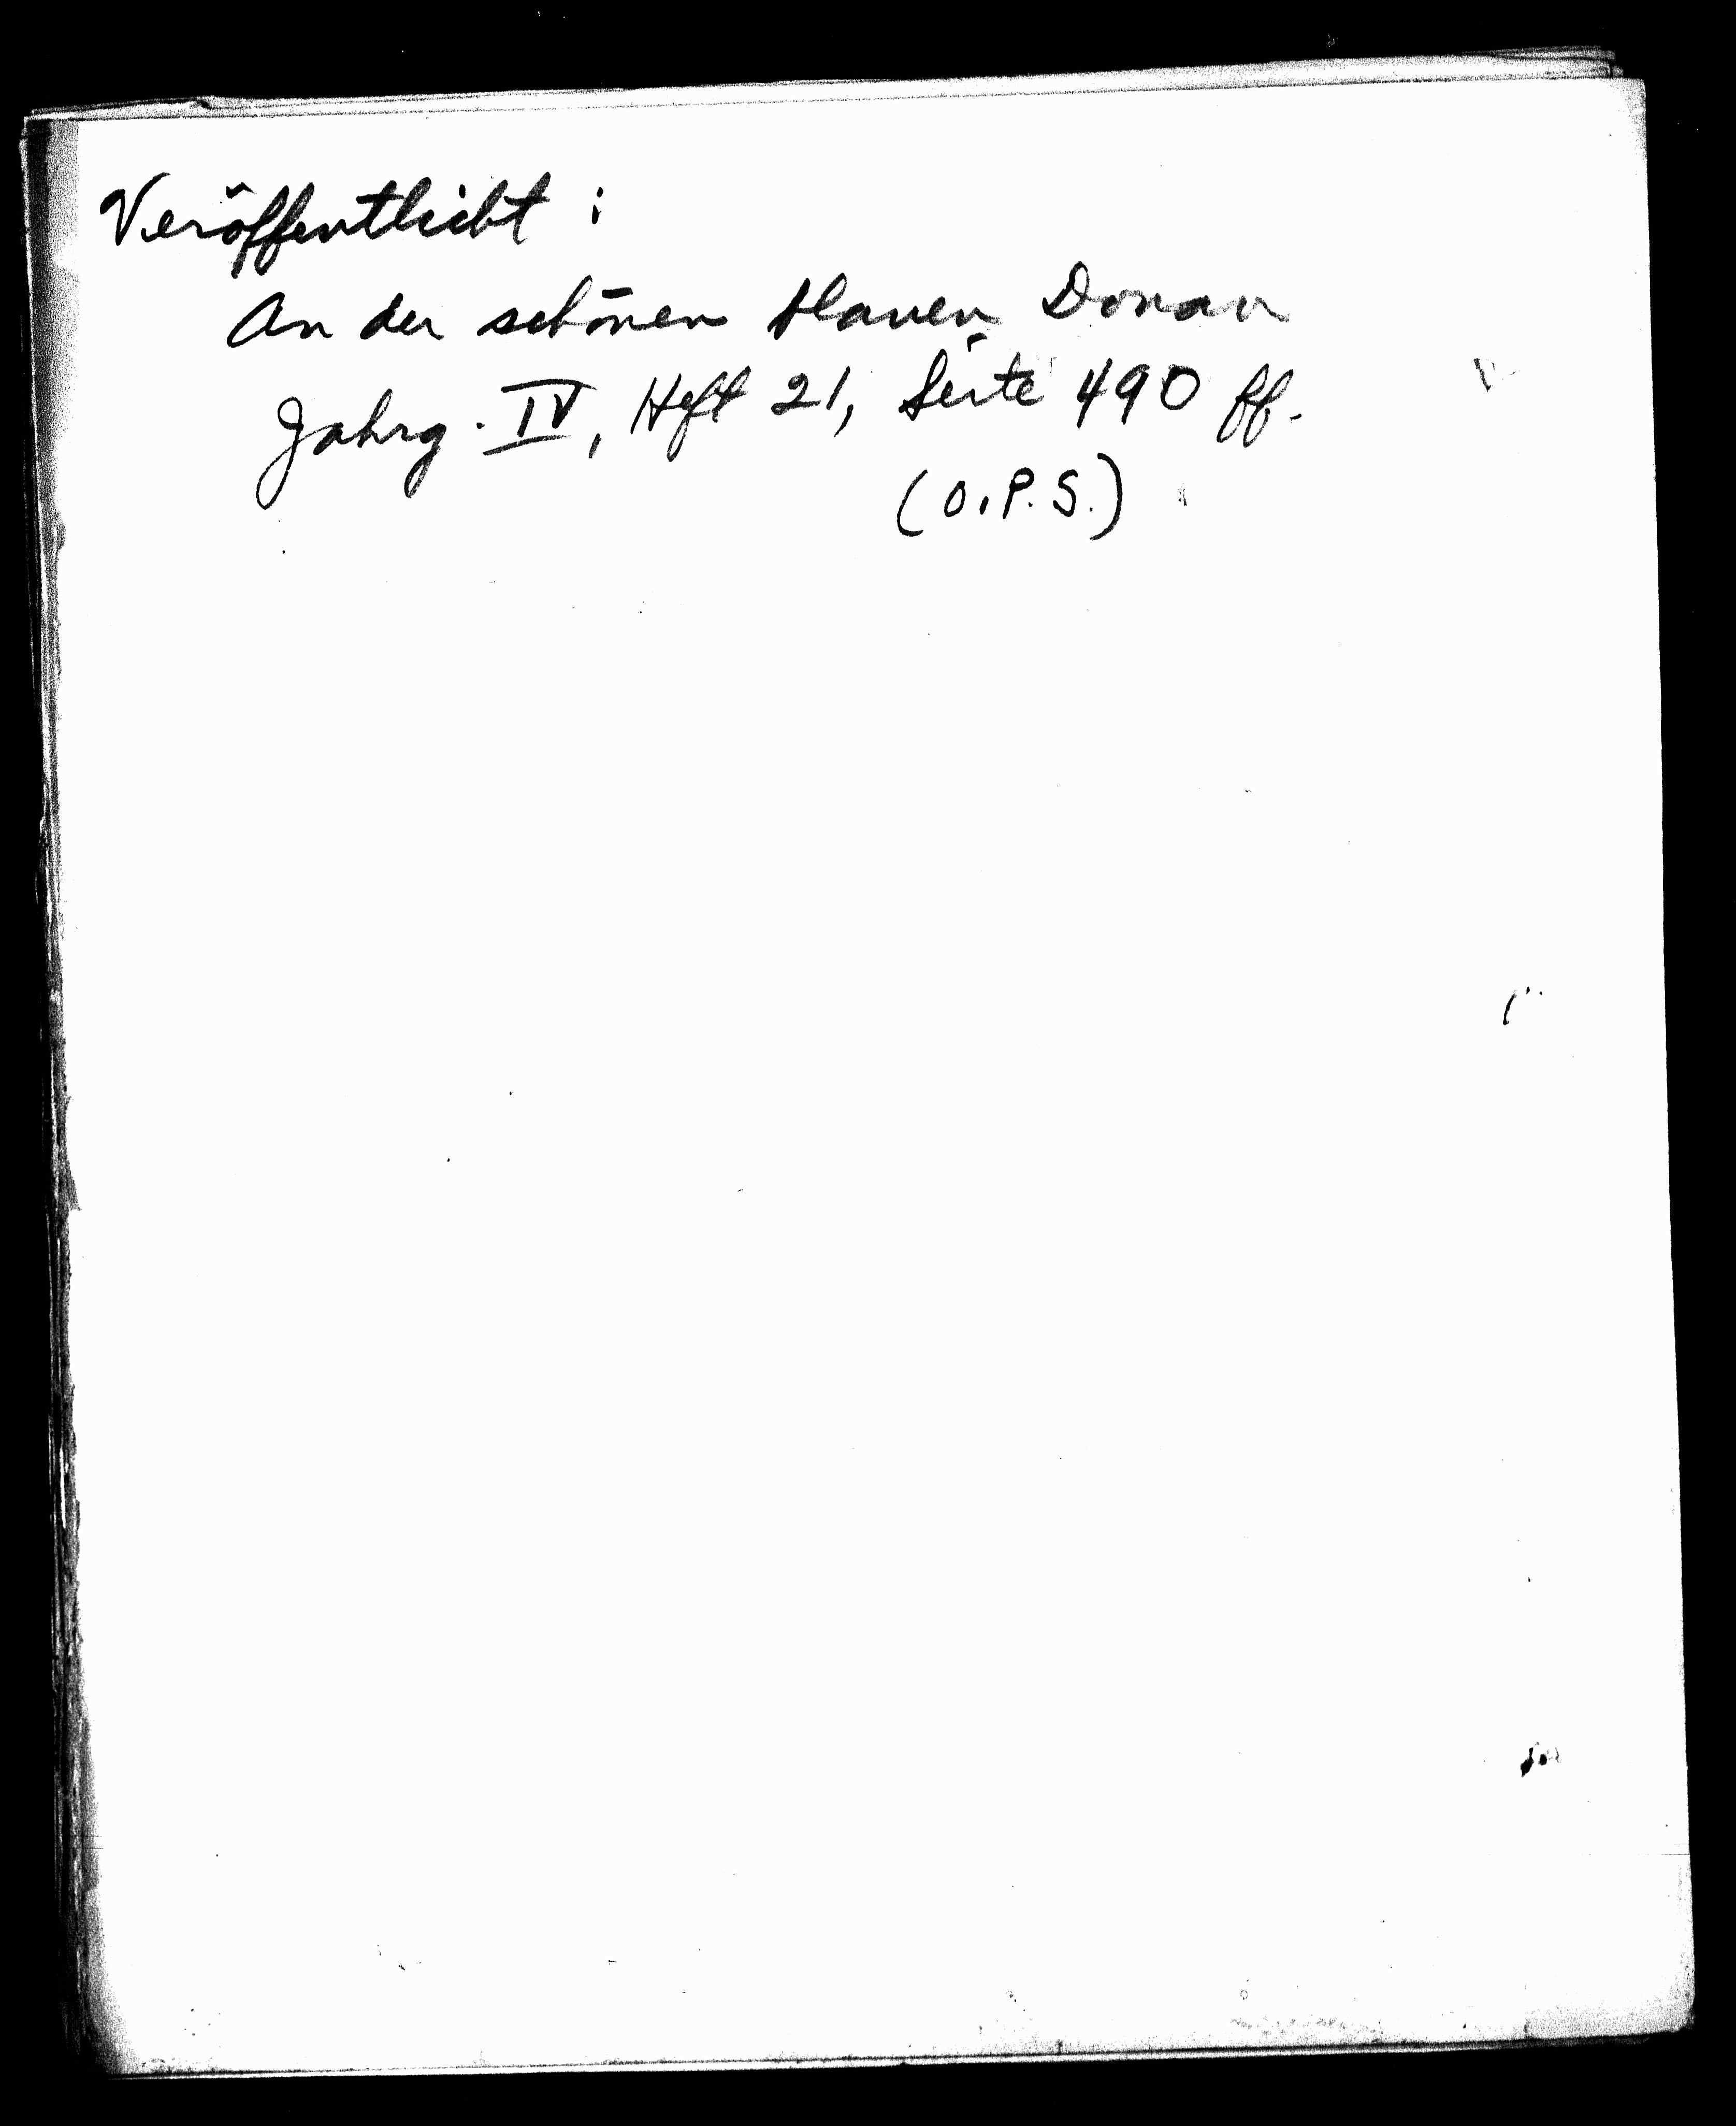 Veröffentlicht :
An der schönen blauen Donau
Jahrg. IV, Heft 21, Seite 490 ff.
(O.P.S.)